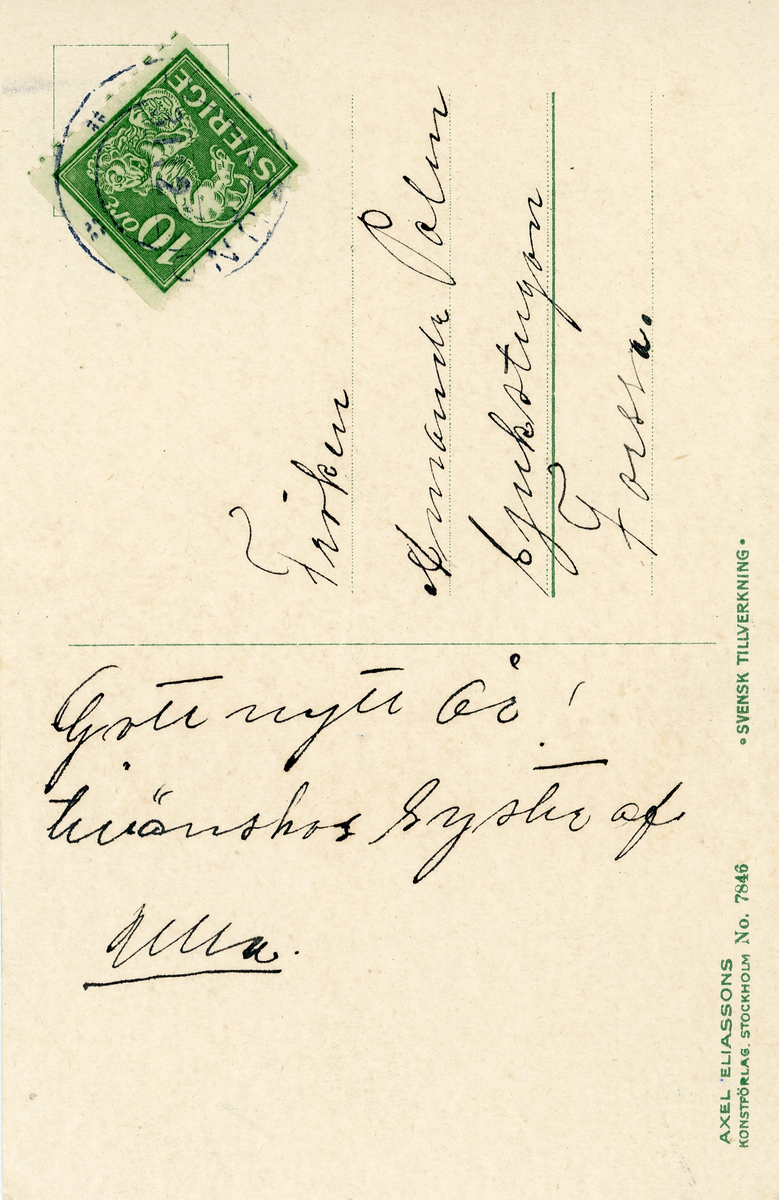 Gott nytt år!
tillönskas Syster af
Ulla.
Fröken
Amanda Palm
Sjukstugan
Forssa.
SVERIGE
10 ÖRE
• SVENSK TILLVERKNING •
AXEL ELIASSONS
KONSTFÖRLAG. STOCKHOLM No. 7846